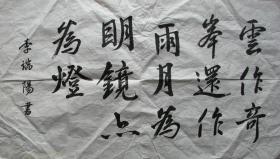 雲作奇
峯還作
雨月為
明鏡亦
為燈
李瑞陽書